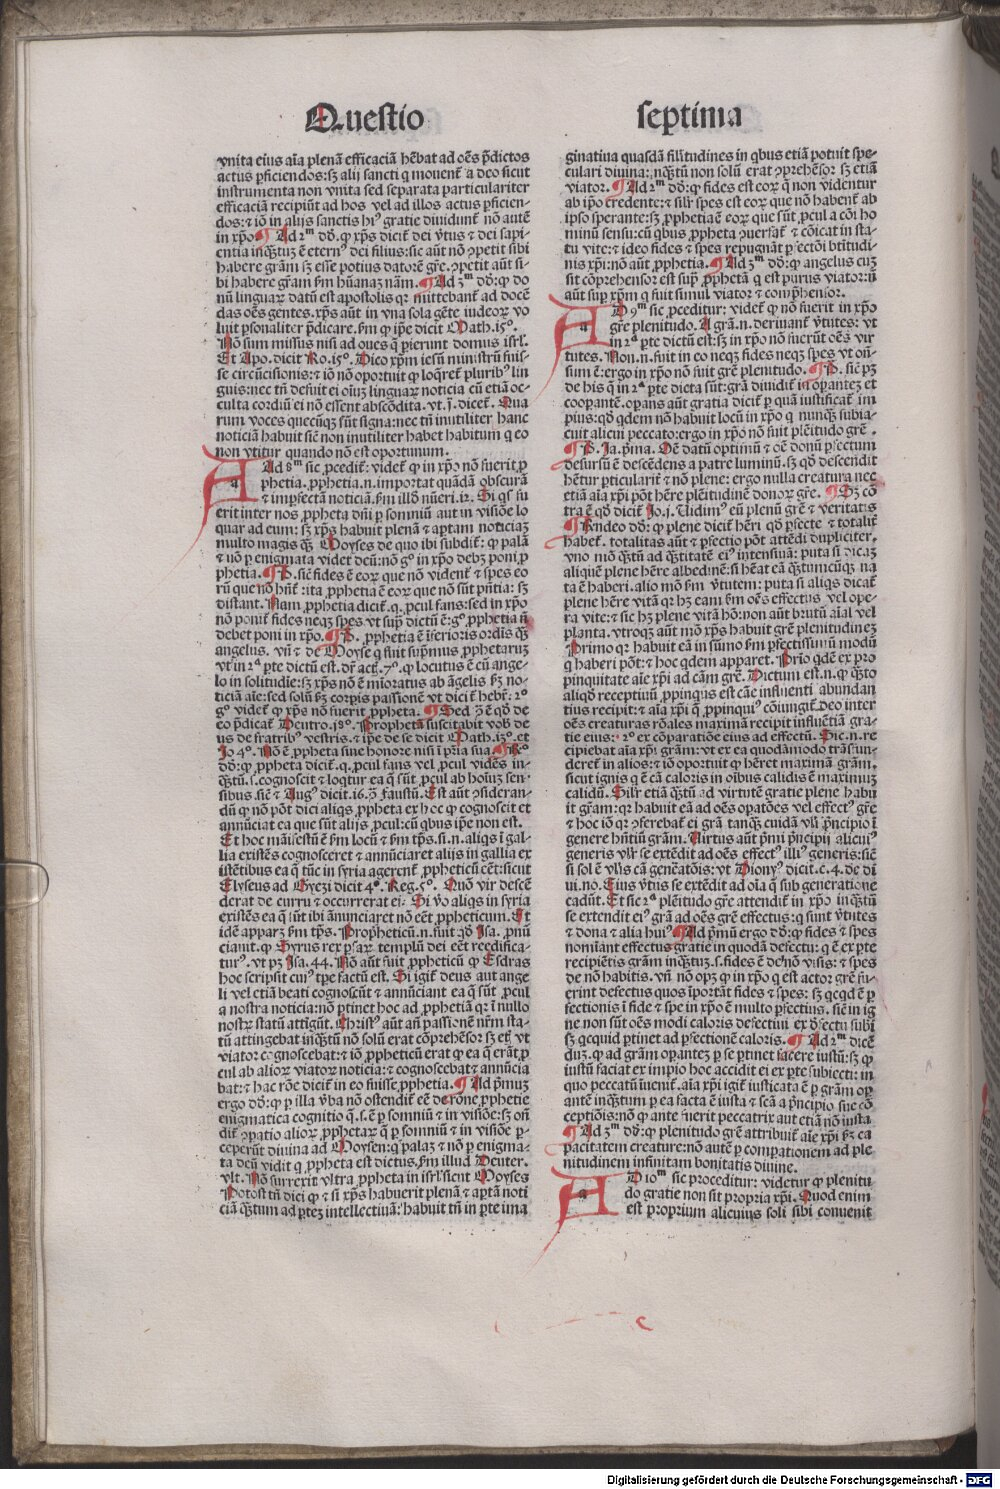 Questio septima
vnita eius aīa plenā efficaciā hēbat ad oēs p̄dictos
actus ꝑficiendos: sꝫ alij sancti q mouent᷑ a deo sicut
instrumenta non vnita sed separata particulariter
efficaciā recipiūt ad hos vel ad illos actus ꝑficien-
dos: ⁊ iō in alijs sanctis hiꝰ gratie diuidunt᷑ nō autē
in xp̄o ¶ Ad 2ᵐ dō: ꝙ xp̄s dicit᷑ dei v̄tus ⁊ dei sapi-
entia inq̄ꝫtuꝫ ē eternꝰ dei filius: sic aūt nō ꝯpetit sibi
habere grām sꝫ esse potius datorē gr̄e. ꝯpetit aūt si-
bi habere gr̄am ẜm hūanaꝫ nām. ¶ Ad 3ᵐ dō: ꝙ do
nū linguaꝝ datū est apostolis qꝛ mittebant᷑ ad docē
das oēs gentes. xp̄s aūt in vna sola gēte iudeoꝝ vo
luit ꝑsonaliter p̄dicare. ẜm ꝙ ip̄e dicit Math. 15º.
Nō sum missus nisi ad oues q̄ pierunt domus isrl̄.
Et Apo. dicit Ro. 15º. Dico xp̄m iesū ministrū fuis-
se circūcisionis: ⁊ iō nō oportuit ꝙ loqret᷑ pluribꝰ lin
guis: nec tn̄ defuit ei oīuꝫ linguaꝝ noticia cū etiā oc-
culta cordiū ei nō essent abscōdita. vt. j. dicet᷑. Qua
rum voces quecūqꝫ sūt signa: nec tn̄ inutiliter hanc
noticiā habuit siē non inutiliter habet habitum q eo
non vtitur quando nō est oportunum.
Ad 8ᵐ sic ꝓcedit᷑: videt᷑ ꝙ in xp̄o nō fuerit ꝓ
phetia. ꝓphetia. n. importat quādā obscurā
⁊ imꝑfectā noticiā. ẜm illd̄ nūeri. 12. Si qs fu
erit inter nos ꝓpheta dn̄i ꝑ somniū aut in visiōe lo
quar ad eum: sꝫ xp̄s habuit plenā ⁊ aptam noticiaꝫ
multo magis q̄ꝫ Moyses de quo ibi subdit᷑: ꝙ palā
⁊ nō ꝑ enigmata videt᷑ deū: nō gº in xp̄o debꝫ poni ꝓ
phetia. ¶ P. siē fides ē eoꝝ que nō vident᷑ ⁊ spes eo
rū que nō hn̄t᷑: ita ꝓphetia ē eoꝝ que nō sūt p̄ntia: sꝫ
distant. Nam ꝓphetia dicit᷑. q. ꝓcul fans: sed in xp̄o
nō ponit᷑ fides neqꝫ spes vt supͣ dictū ē: gº ꝓphetia n̄
debet poni in xp̄o. ¶ P. ꝓpheta ē īferioris ordīs q̄ꝫ
angelus. vn̄ ⁊ de Moyse q fuit supͤmus ꝓphetaruꝫ
vt in 2ª pte dictū est. dr̄ act. 7º. ꝙ locutus ē cū ange-
lo in solitudīe: sꝫ xp̄s nō ē mioratus ab āgelis ꝟꝫ no-
ticiā aīe: sed solū ꝟꝫ corpis passionē vt dicit᷑ hebr̄. 2º
gº videt᷑ ꝙ xp̄s nō fuerit ꝓpheta. ¶ Sed ꝯ̄ ē qō de
eo p̄dicat᷑ Deutro. 18º. Prophetā suscitabit vob̄ de
us de fratribꝰ vestris. ⁊ ip̄e de se dicit Math. 13º. et
Jo 4º. Nō ē ꝓpheta sine honore nisi ī pr̄ia sua. ¶ Rº
dō: ꝙ ꝓpheta dicit᷑. q. ꝓcul fans vel ꝓcul vidēs in-
q̄ꝫtū. s. cognoscit ⁊ loqtur ea q̄ sūt ꝓcul ab hoīuꝫ sen-
sibus. siē ⁊ Augꝰ dicit. 16. ꝯ̄ faustū. Est aūt ꝯsideran-
dū q̄ nō pōt dici aliqs ꝓpheta ex hoc ꝙ cognoscit et
annūciat ea que sūt alijs ꝓcul: cū qbus ip̄e non est.
Et hoc māifestū ē ẜm locū ⁊ ẜm tp̄s. si. n. aliqs ī gal-
lia existēs cognosceret ⁊ annūciaret alijs in gallia ex
istētibus ea q̄ tūc in syria agerent᷑ ꝓpheticū eēt: sicut
Elyseus ad Gyezi dicit 4º. Reg. 5º. Quō vir descē
derat de curru ⁊ occurrerat ei. Si v̄o aliqs in syria
existēs ea q̄ sūt ibi ānunciaret nō eēt ꝓpheticum. Et
idē apparꝫ ẜm tp̄s. Propheticū. n. fuit qō Isa. ꝓnū
ciauit. ꝙ Cyrus rex ꝑsaꝝ templū dei eēt reedifica-
turꝰ. vt pꝫ Isa. 44. Nō aūt fuit ꝓpheticū ꝙ Esdras
hoc scripsit cuiꝰ tp̄e factū est. Si igit᷑ deus aut ange
li vel etiā beati cognoscūt ⁊ annūciant ea q̄ sūt ꝓcul
a nostra noticia: nō ptinet hoc ad ꝓphetiā qꝛ ī nullo
nostꝝ statū attigūt. Christꝰ aūt an̄ passionē nr̄m sta-
tū attingebat inq̄ꝫtū nō solū erat cōprehēsor sꝫ et vt
viator cognoscebat: ⁊ iō ꝓpheticū erat ꝙ ea q̄ erāt ꝓ
cul ab alioꝝ viatoꝝ noticia: ⁊ cognoscebat ⁊ annūcia
bat: ⁊ hac rōe dicit᷑ in eo fuisse ꝓphetia. ¶ Ad p̄muꝫ
ergo dō: ꝙ ꝑ illa v̄ba nō ostendit᷑ eē de rōne ꝓphetie
enigmatica cognitio q̄. s. ē ꝑ somniū ⁊ in visiōe: sꝫ on̄
dit᷑ ꝯpatio alioꝝ ꝓphetaꝝ q ꝑ somniū ⁊ in visiōe ꝑ-
ceperūt diuina ad Moysen: q palaꝫ ⁊ nō ꝑ enigma-
ta deū vidit q ꝓpheta est dictus. ẜm illud Deuter.
vlt. Nō surrexit vltra ꝓpheta in isrl̄ sicut Moyses
Potost tn̄ dici ꝙ ⁊ si xp̄s habuerit plenā ⁊ aptā noti
ciā q̄ꝫtum ad ꝑteꝫ intellectiuā: habuit tn̄ in ꝑte ima
ginatiua quasdā silitudines in qbus etiā potuit spe-
culari diuina: inq̄ꝫtū non solū erat ꝯprehēsor sꝫ etiā
viator. ¶ Ad 2ᵐ dō: ꝙ fides est eoꝝ q̄ non videntur
ab ip̄o credente: ⁊ silr̄ spes est eoꝝ que nō habent᷑ ab
ipso sperante: sꝫ ꝓphetia ē eoꝝ que sūt ꝓcul a cōi ho
minū sensu: cū qbus ꝓpheta ꝯuersat᷑ ⁊ cōicat in sta-
tu vite: ⁊ ideo fides ⁊ spes repugnāt ꝑfectōi btitudi-
nis xp̄i: nō aūt ꝓphetia. ¶ Ad 3ᵐ dō: ꝙ angelus cuꝫ
sit cōprehensor est supͣ ꝓphetā q est purus viator: n̄
aūt supͣ xp̄m q fuit simul viator ⁊ comp̄hensor.
AD 9ᵐ sic ꝓceditur: videt᷑ ꝙ nō fuerit in xp̄o
gr̄e plenitudo. A grā. n. deriuant᷑ v̄tutes: vt
in 2ª pte dictū est: sꝫ in xp̄o nō fuerūt oēs vir
tutes. Non. n. fuit in eo neqꝫ fides neqꝫ spes vt on̄-
sum ē: ergo in xp̄o nō fuit gr̄e plenitudo. ¶ P. siē pꝫ
de his q̄ in 2ª pte dicta sūt: grā diuidit᷑ ī oꝑantez et
cooꝑantē. oꝑans aūt gratia dicit᷑ ꝑ quā iustificat᷑ im
pius: qō qdem nō habuit locū in xp̄o q nunqꝫ subia-
cuit alicui peccato: ergo in xp̄o nō fuit plēitudo gr̄e.
¶ P. Ja. p̄ma. Oē datū optimū ⁊ oē donū ꝑfectum
desursū ē descēdens a patre luminū. sꝫ qō descendit
hētur pticularit᷑ ⁊ nō plene: ergo nulla creatura nec
etiā aīa xp̄i pōt hēre plēitudinē donoꝝ gr̄e. ¶ Sꝫ cō
tra ē qō dicit᷑ Jo. j. Vidimꝰ eū plenū gr̄e ⁊ veritatis
¶ Rn̄deo dō: ꝙ plene dicit᷑ hēri qō ꝑfecte ⁊ totalit᷑
habet᷑. totalitas aūt ⁊ ꝑfectio pōt attēdi dupliciter.
vno mō q̄ꝫtū ad q̄ꝫtitatē eiꝰ intensiuā: puta si dicaꝫ
aliquē plene hēre albedinē: si hēat eā q̄ꝫtumcūqꝫ na
ta ē haberi. alio mō ẜm v̄tutem: puta si aliqs dicat᷑
plene hēre vitā qꝛ hꝫ eam ẜm oēs effectus vel ope-
ra vite: ⁊ sic hꝫ plene vitā hō: non aūt brutū aīal vel
planta. vtroqꝫ aūt mō xp̄s habuit gr̄e plenitudineꝫ
Primo qꝛ habuit eā in sūmo ẜm ꝑfectissimū modū
q haberi pōt: ⁊ hoc qdem apparet. Prīo qdē ex pro
pinquitate aīe xp̄i ad cām gr̄e. Dictum est. n. ꝙ q̄ꝫto
aliqō receptiuū ꝓpinqus est cāe influenti abundan
tius recipit: ⁊ aīa xp̄i q̄ ꝓpinquiꝰ cōiungit᷑ deo inter
oēs creaturas rōales maximā recipit influētiā gra-
tie eius: 2º ex cōparatiōe eius ad effectū. Sic. n. re
cipiebat aīa xp̄i grām: vt ex ea quodāmodo trāsfun
deret᷑ in alios: ⁊ iō oportuit ꝙ hēret maximā grām.
sicut ignis q ē cā caloris in oībus calidis ē maximuꝫ
calidū. Silr̄ etiā q̄ꝫtū ad virtutē gratie plene habu
it gr̄am: qꝛ habuit eā ad oēs opatōes vel effectꝰ gr̄e
⁊ hoc iō qꝛ ꝯferebat᷑ ei grā tanqꝫ cuidā vl̄i p̄ncipio ī
genere hn̄tiū grām. Virtus aūt p̄mi p̄ncipij alicuiꝰ
generis vlr̄ se extēdit ad oēs effectꝰ illiꝰ generis: siē
si sol ē vl̄is cā gen̄eatōis: vt Dionyꝰ dicit. c. 4. de di
ui. no. Eius v̄tus se extēdit ad oīa q̄ sub generatione
cadūt. Et sic 2ª plēitudo gr̄e attendit᷑ in xp̄o inq̄ꝫtū
se extendit eiꝰ grā ad oēs gr̄e effectus: q̄ sunt v̄tutes
⁊ dona ⁊ alia huiꝰ. ¶ Ad p̄mū ergo dō: ꝙ fides ⁊ spes
nomīant effectus gratie in quodā defectu: q̄ ē ex pte
recipiētis grām inq̄ꝫtuꝫ. s. fides ē de nō visis: ⁊ spes
de nō habitis. vn̄ nō opꝫ ꝙ in xp̄o q est actoꝛ gr̄e fu-
erint defectus quos īportāt fides ⁊ spes: sꝫ qcqd ē ꝑ
fectionis ī fide ⁊ spe in xp̄o ē multo ꝑfectius. siē in ig
ne non sūt oēs modi caloris defectiui ex d̄fectu subī
sꝫ qcquid ptinet ad ꝑfectionē caloris. ¶ Ad 2ᵐ dicē
duꝫ. ꝙ ad grām oꝑantez ꝑ se ptinet facere iustū: sꝫ ꝙ
iustū faciat ex impio hoc accidit ei ex pte subiecti: in
quo peccatū iuenit᷑. aīa xp̄i igit᷑ iusticata ē ꝑ grām oꝑ
antē inq̄ꝫtum ꝑ ea facta ē iusta ⁊ scā a p̄ncipio sue cō
ceptiōis: nō ꝙ ante fuerit peccatrix aut etiā nō iusta
¶ Ad 3ᵐ dō: ꝙ plenitudo gr̄e attribuit᷑ aīe xp̄i ꝟꝫ ca
pacitatem creature: nō autē ꝑ compationem ad ple
nitudinem infinitam bonitatis diuine.
AD 10ᵐ sic proceditur: videtur ꝙ plenitu
do gratie non sit propria xp̄i. Quod enim
est proprium alicuius soli sibi conuenit
Digitalisierung gefördert durch die Deutsche Forschungsgemeinschaft - DFG